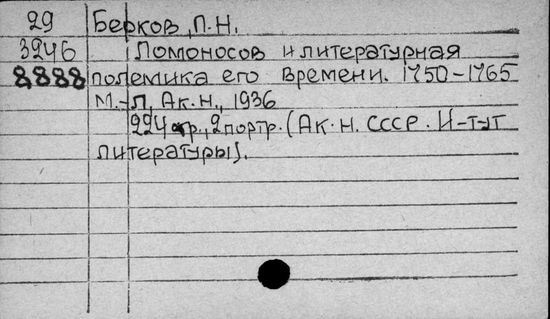 29 Берков, П.Н.
3246 Ломоносов и литературная
8888 полемика его времени. 1750-1765
М.-Л, Ак.Н., 1936
224 стр., 2 портр. (Ак.Н. СССР. И-тут
литературы).